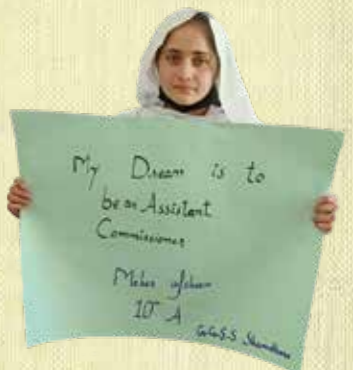 My Dream is to
be an Assistant
Commissioner
Meher afsheen
10th A
G.G.S.S